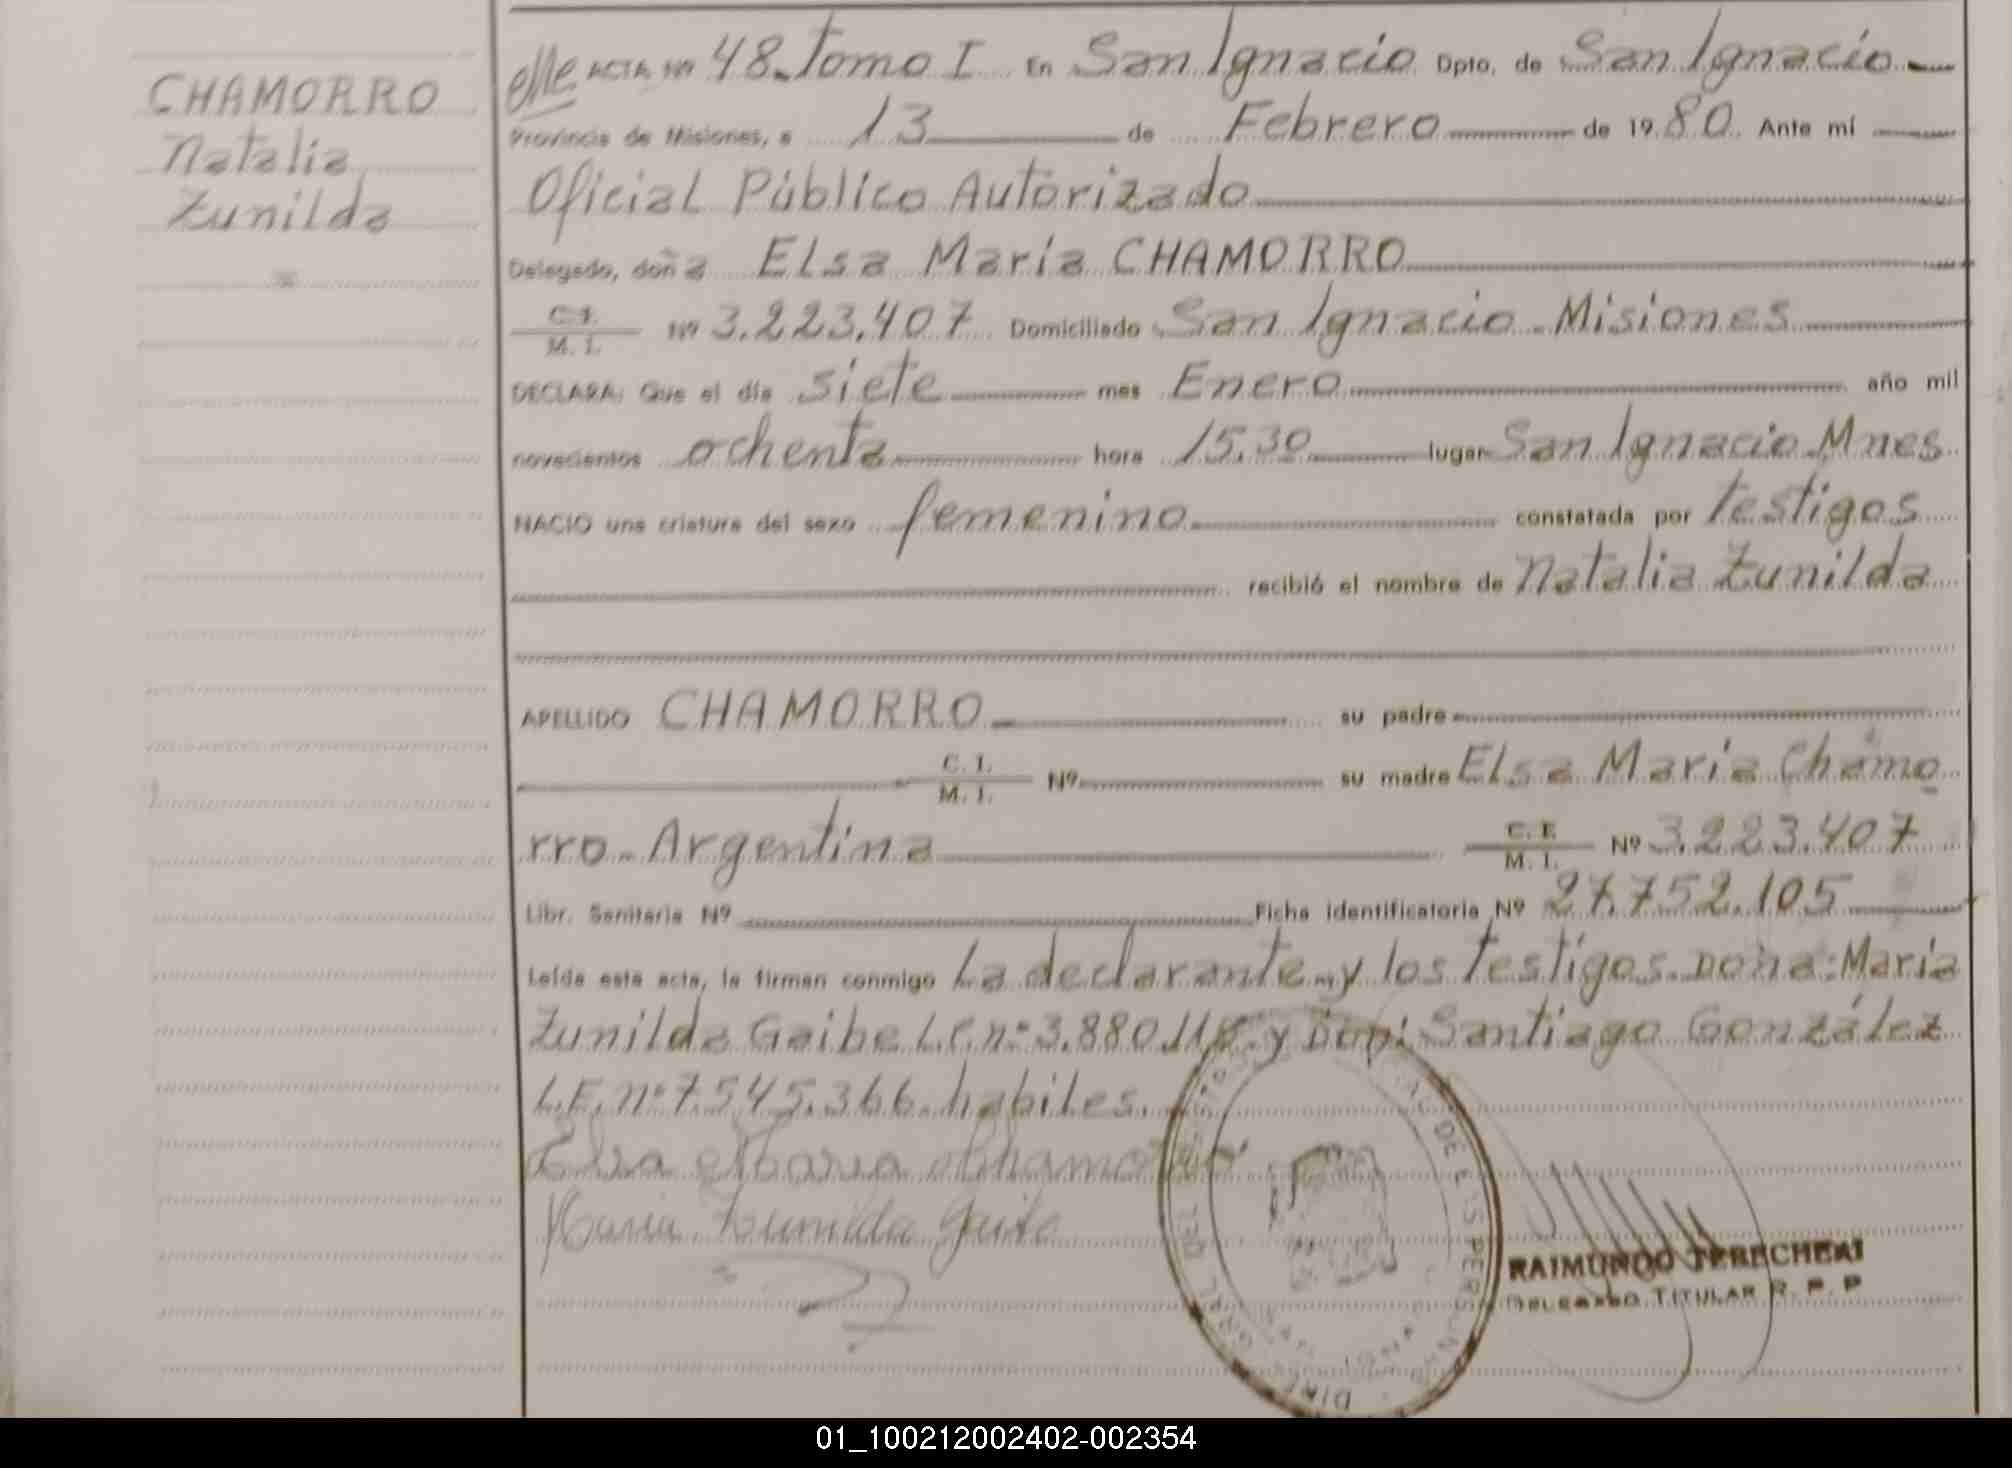 CHAMORRO
Natalia
Zunilda
ACTA Nº 48. Tomo I En San Ignacio Dpto. de San Ignacio
Provincia de Misiones, a 13 de Febrero de 1980. Ante mí
Oficial Público Autorizado
Delegado, doña Elsa María CHAMORRO
C. I. / M. I. Nº 3.223.407 Domiciliado San Ignacio. Misiones
DECLARA: Que el día siete mes Enero año mil
novecientos ochenta hora 15.30 lugar San Ignacio Mnes
NACIO una criatura del sexo femenino constatada por testigos
recibió el nombre de Natalia Zunilda
APELLIDO CHAMORRO su padre
C. I. / M. I. Nº su madre Elsa María Chamo
rro. Argentina C. I. / M. I. Nº 3.223.407
Libr. Sanitaria Nº Ficha identificatoria Nº 27.752.105
Leída esta acta, la firman conmigo La declarante y los testigos. Doña: María
Zunilda Gaibe L.C. nº 3.880.118. y Don: Santiago González
L.E. nº 7.545.366. habiles.
Elsa María Chamorro
María Zunilda Gaibe
RAIMUNDO TERECHEAI
DELEGADO TITULAR R. P. P
01_100212002402-002354